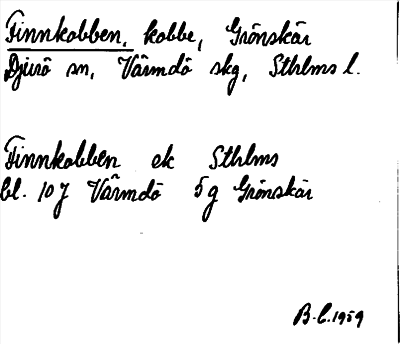 Finnkobben, kobbe, Grönskär
Djurö sn, Värmdö skg, Sthlms l.
Finnkobben ek Sthlms
bl. 10J Värmdö 5g Grönskär
B.C. 1959